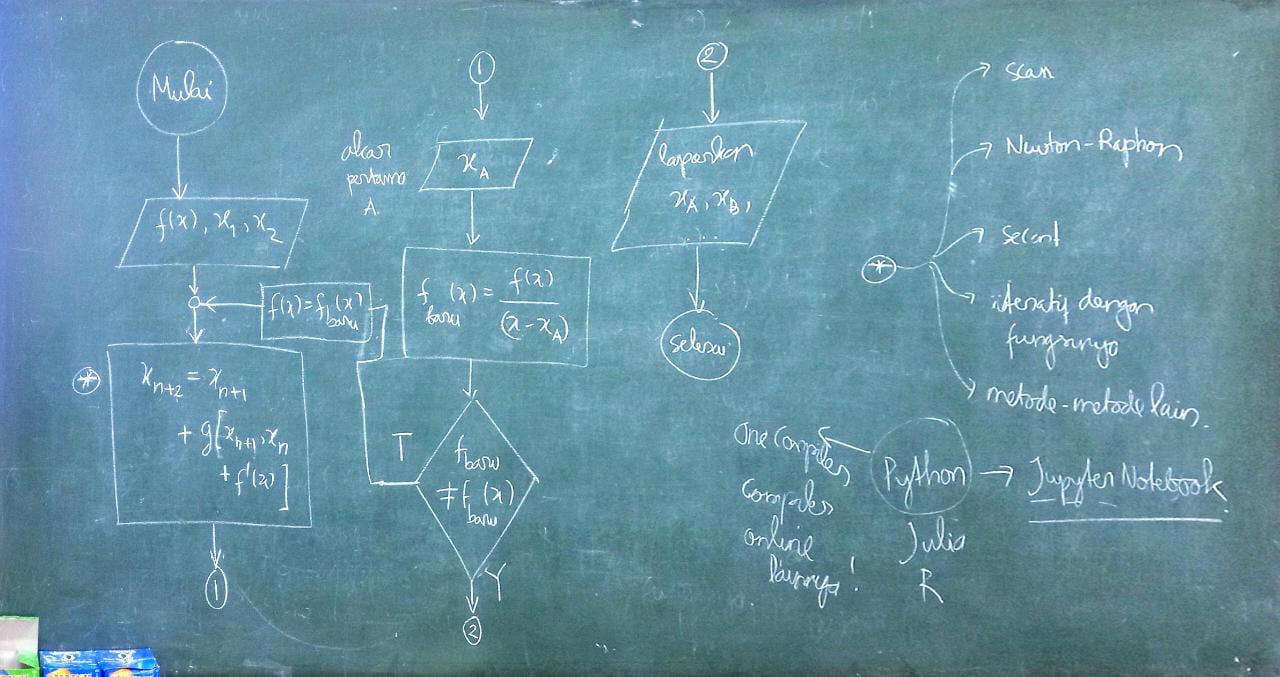 Mulai
f(x), x₁, x₂
f(x) = f baru (x)
*
xₙ₊₂ = xₙ₊₁
+ g[xₙ₊₁, xₙ
+ f'(x)]
1
1
akar
pertama
A.
x_A
f baru (x) = f(x) / (x - x_A)
T
f baru
≠ f baru (x)
Y
2
2
laporkan
x_A, x_B,
...
selesai
*
scan
Newton-Raphson
Secant
iteratif dengan
fungsinya
metode-metode lain.
One Compiler,
Compiler
online
lainnya!
Python
Julia
R
Jupyter Notebook